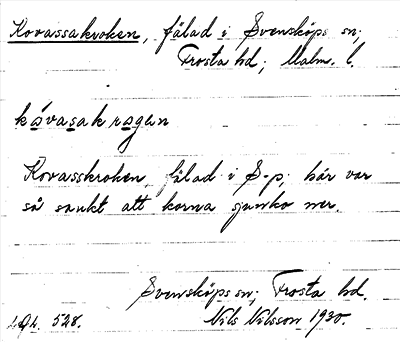 Kovassakroken, fälad i Svensköps sn;
Frosta hd; Malm. l.
kåvasakrogen
Kovasskroken, fälad i S-p; här var
så sankt att korna sjunko ner.
Svensköps sn; Frosta hd.
528. Nils Nilsson 1930.